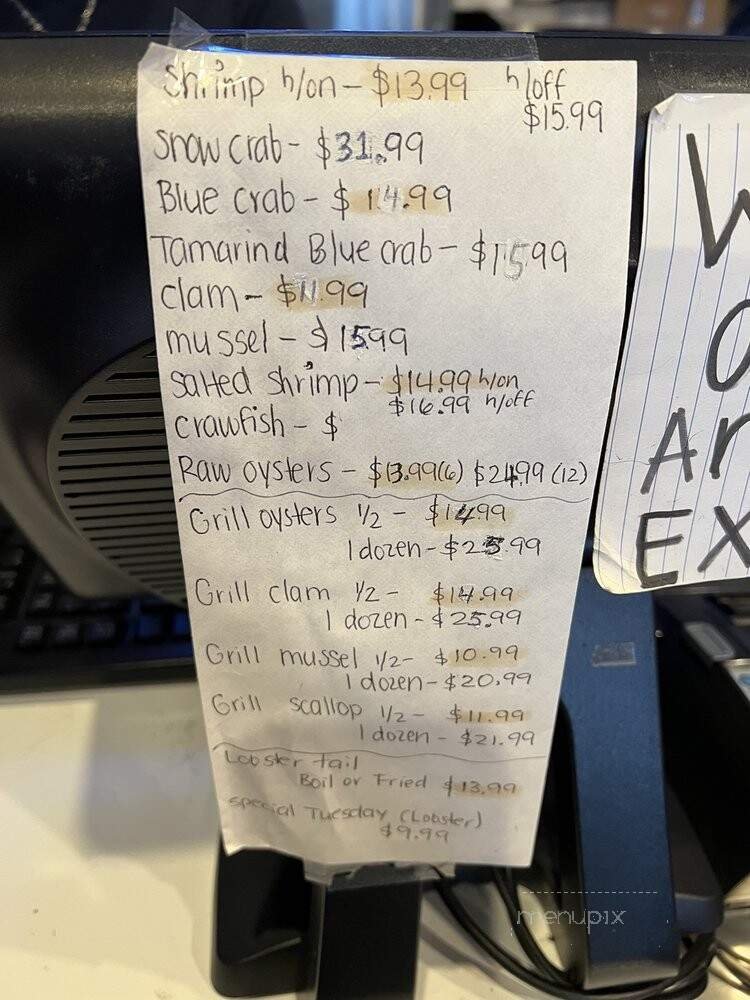 Shrimp h/on - $13.99 h/off
$15.99
Snow crab - $31.99
Blue crab - $14.99
Tamarind Blue crab - $15.99
clam - $11.99
mussel - $15.99
salted shrimp - $14.99 h/on
$16.99 h/off
crawfish - $
Raw oysters - $13.99(6) $24.99 (12)
Grill oysters 1/2 - $14.99
1 dozen - $25.99
Grill clam 1/2 - $14.99
1 dozen - $25.99
Grill mussel 1/2 - $10.99
1 dozen - $20.99
Grill scallop 1/2 - $11.99
1 dozen - $21.99
Lobster tail
Boil or Fried $13.99
special Tuesday (Lobster)
$9.99
EX
menupix